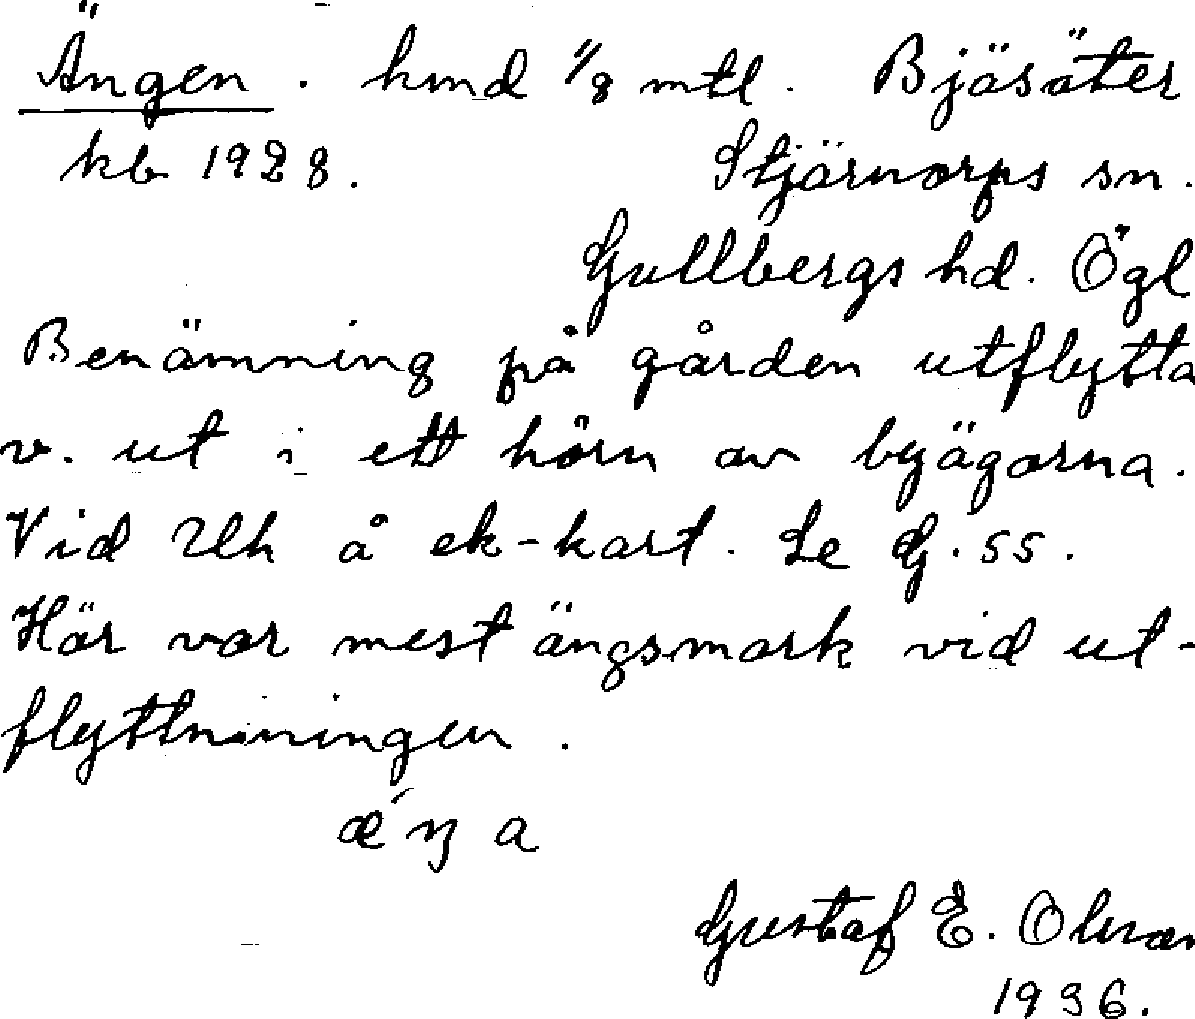 Ängen. hmd 1/8 mtl. Bjäsäter
kb. 1928. Stjärnorps sn.
Gullbergs hd. Ögl
Benämning på gården utflytta
v. ut i ett hörn av byägorna.
Vid Uh å ek-kart. Se G. 55.
Här var mest ängsmark vid ut-
flyttniningen.
ǽŋa
Gustaf E.
1936.